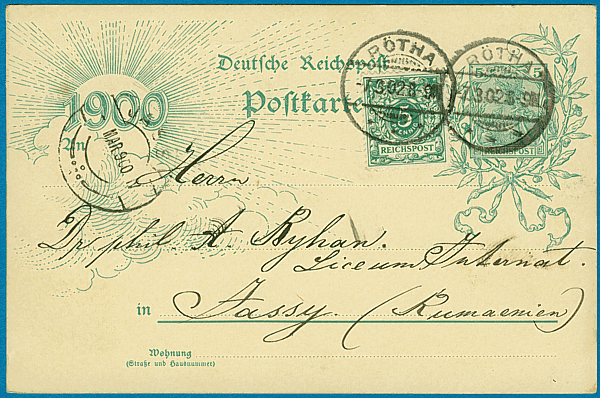 Deutsche Reichspost
1900
Postkarte
RÖTHA
3.02.8-9
5
PFENNIG
REICHSPOST
RÖTHA
.3.02.8-9
5
REICHSPOST
An
MAR 900
Herrn
Dr phil A. Byhan.
Liceum Internat.
in Jassy (Rumaenien)
Wohnung
(Straße und Hausnummer)